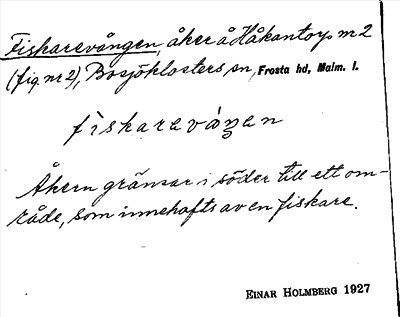 Fiskarevången, åker å Håkantorp m 2
(fig. nr 2), Bosjöklosters sn, Frosta hd, Malm. l.
fìskarevàŋen
Åkern gränsar i söder till ett om-
råde, som innehafts av en fiskare.
EINAR HOLMBERG 1927